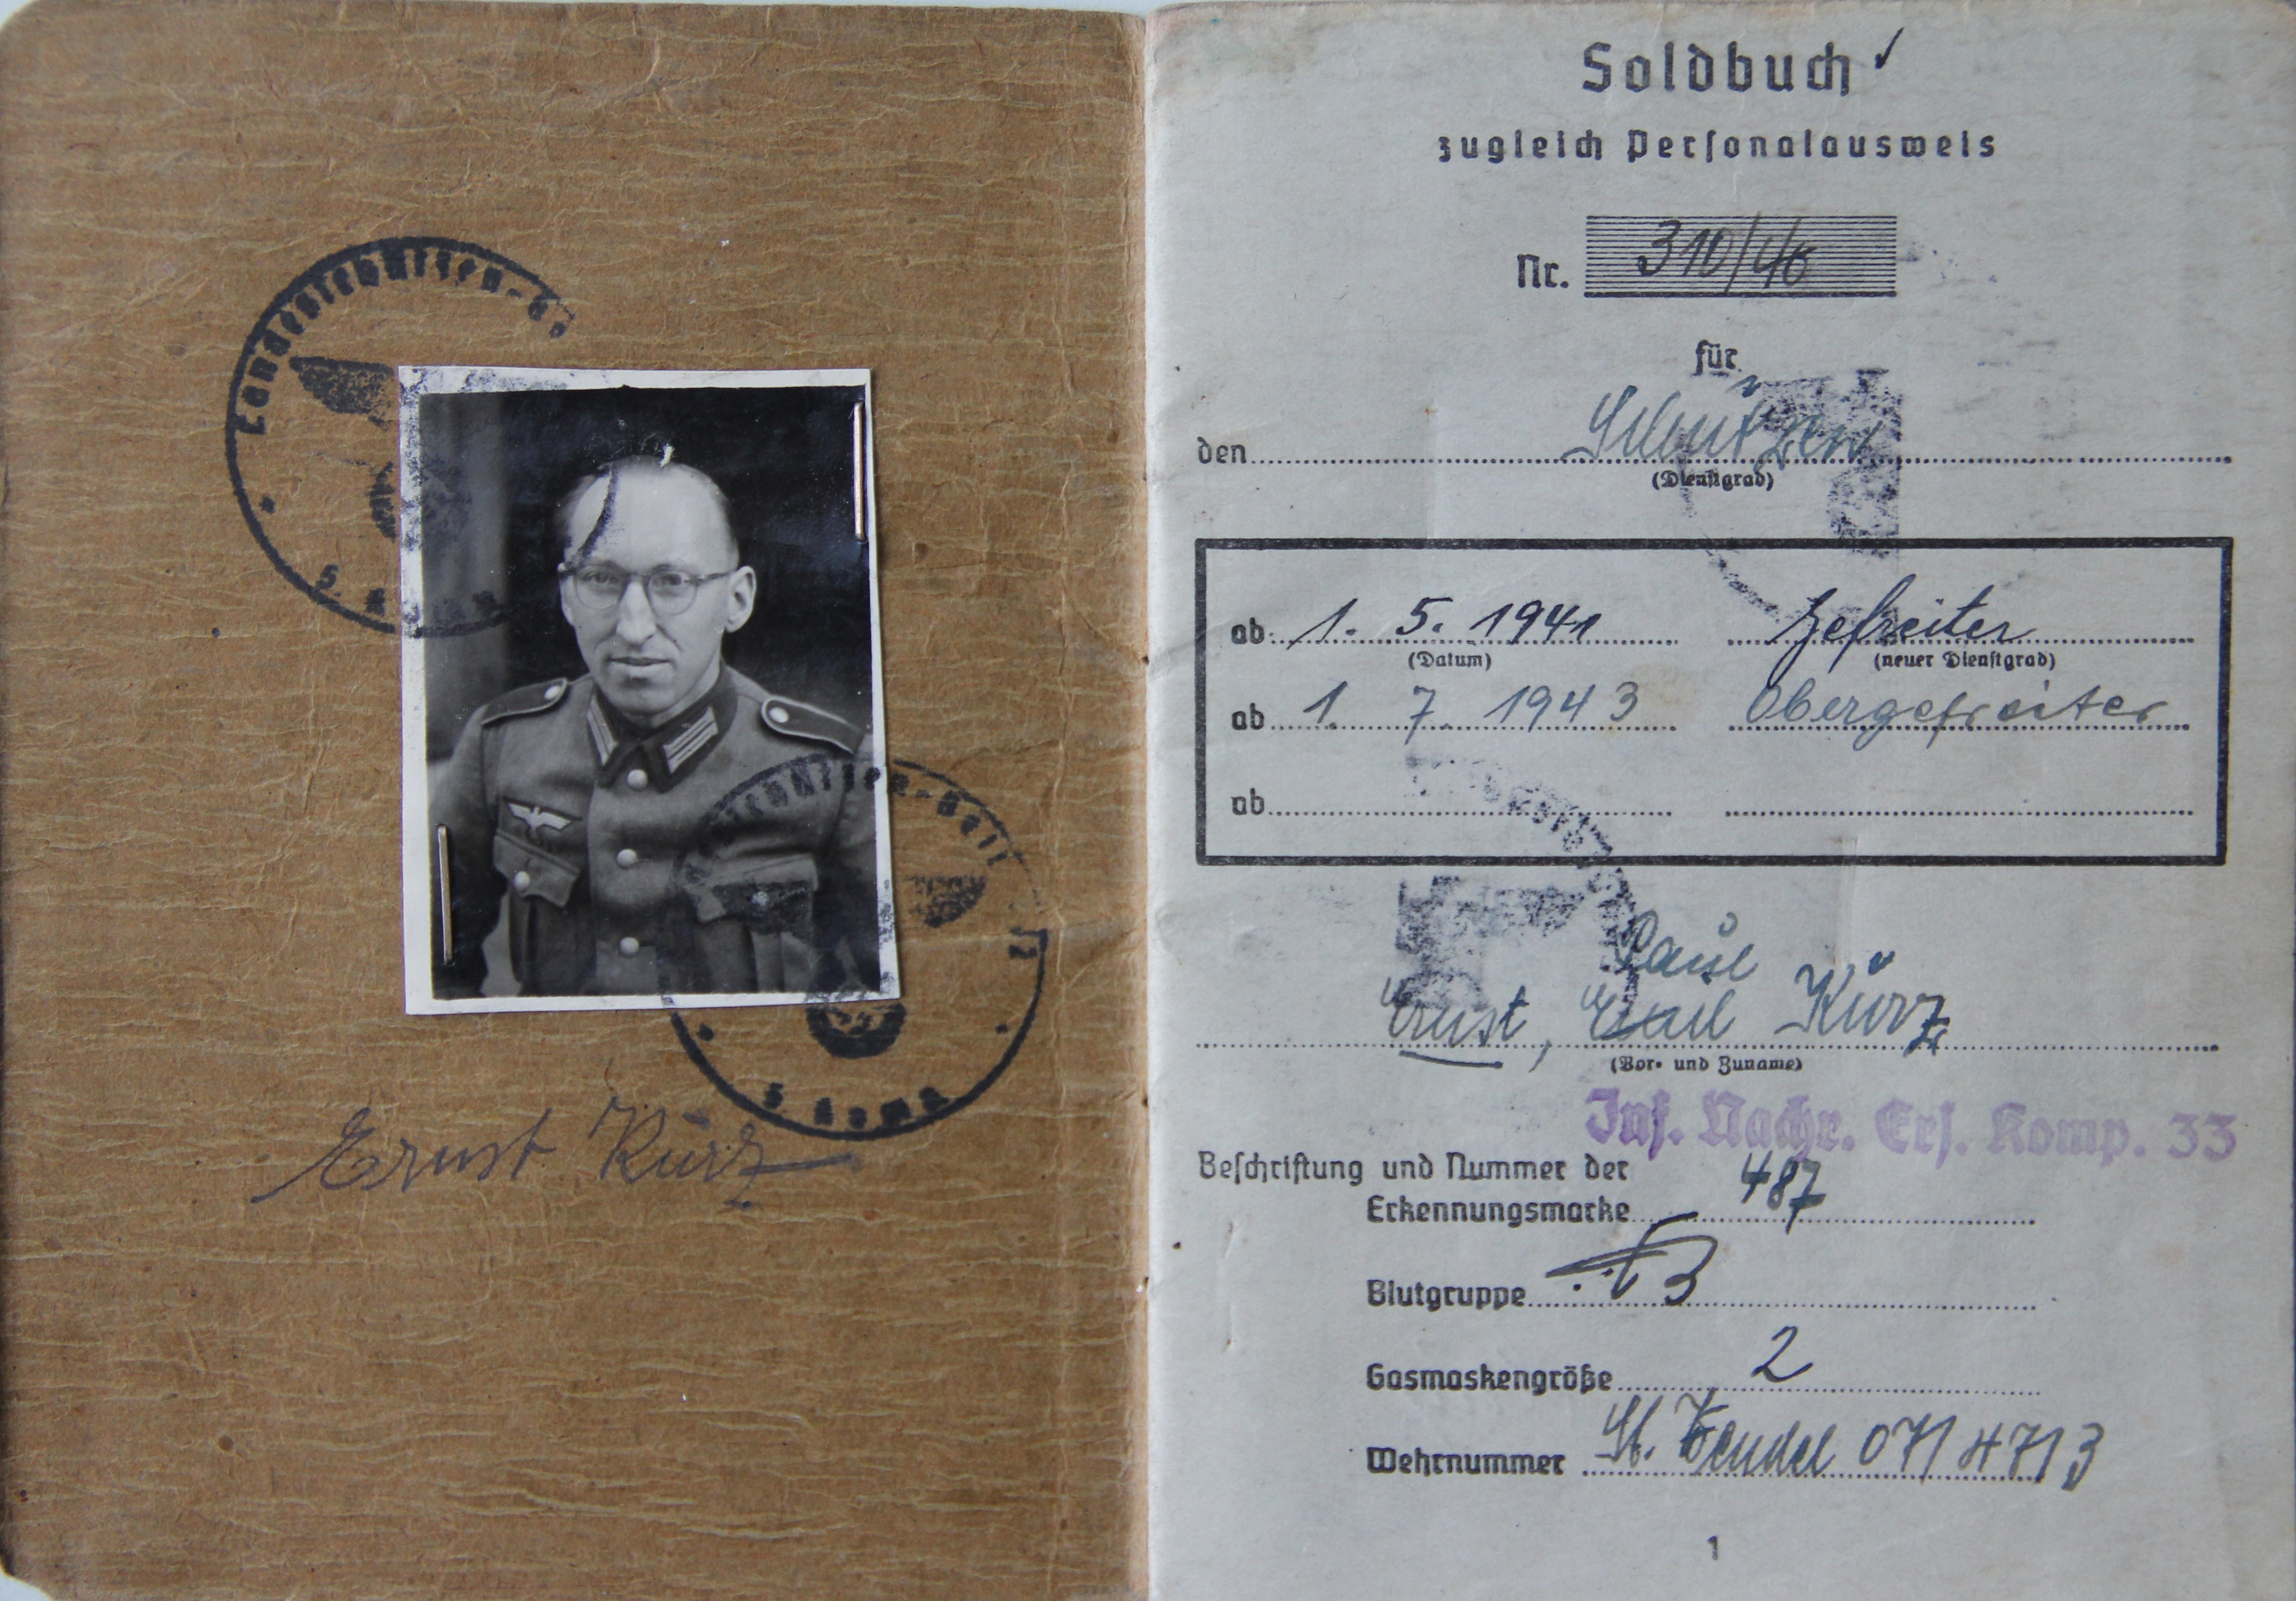 Landesschützen-
5.
5. Komp.
Ernst Kurz
Soldbuch
zugleich Personalausweis
Nr. 310/40
für
den Schützen
(Dienstgrad)
ab 1. 5. 1941 Gefreiter
(Datum) (neuer Dienstgrad)
ab 1. 7. 1943 Obergefreiter
ab
Paul
Ernst, Kurz
(Vor- und Zuname)
Inf. Nachr. Ers. Komp. 33
Beschriftung und Nummer der
Erkennungsmarke 487
Blutgruppe
Gasmaskengröße 2
Wehrnummer St. Wendel 07/47/3
1